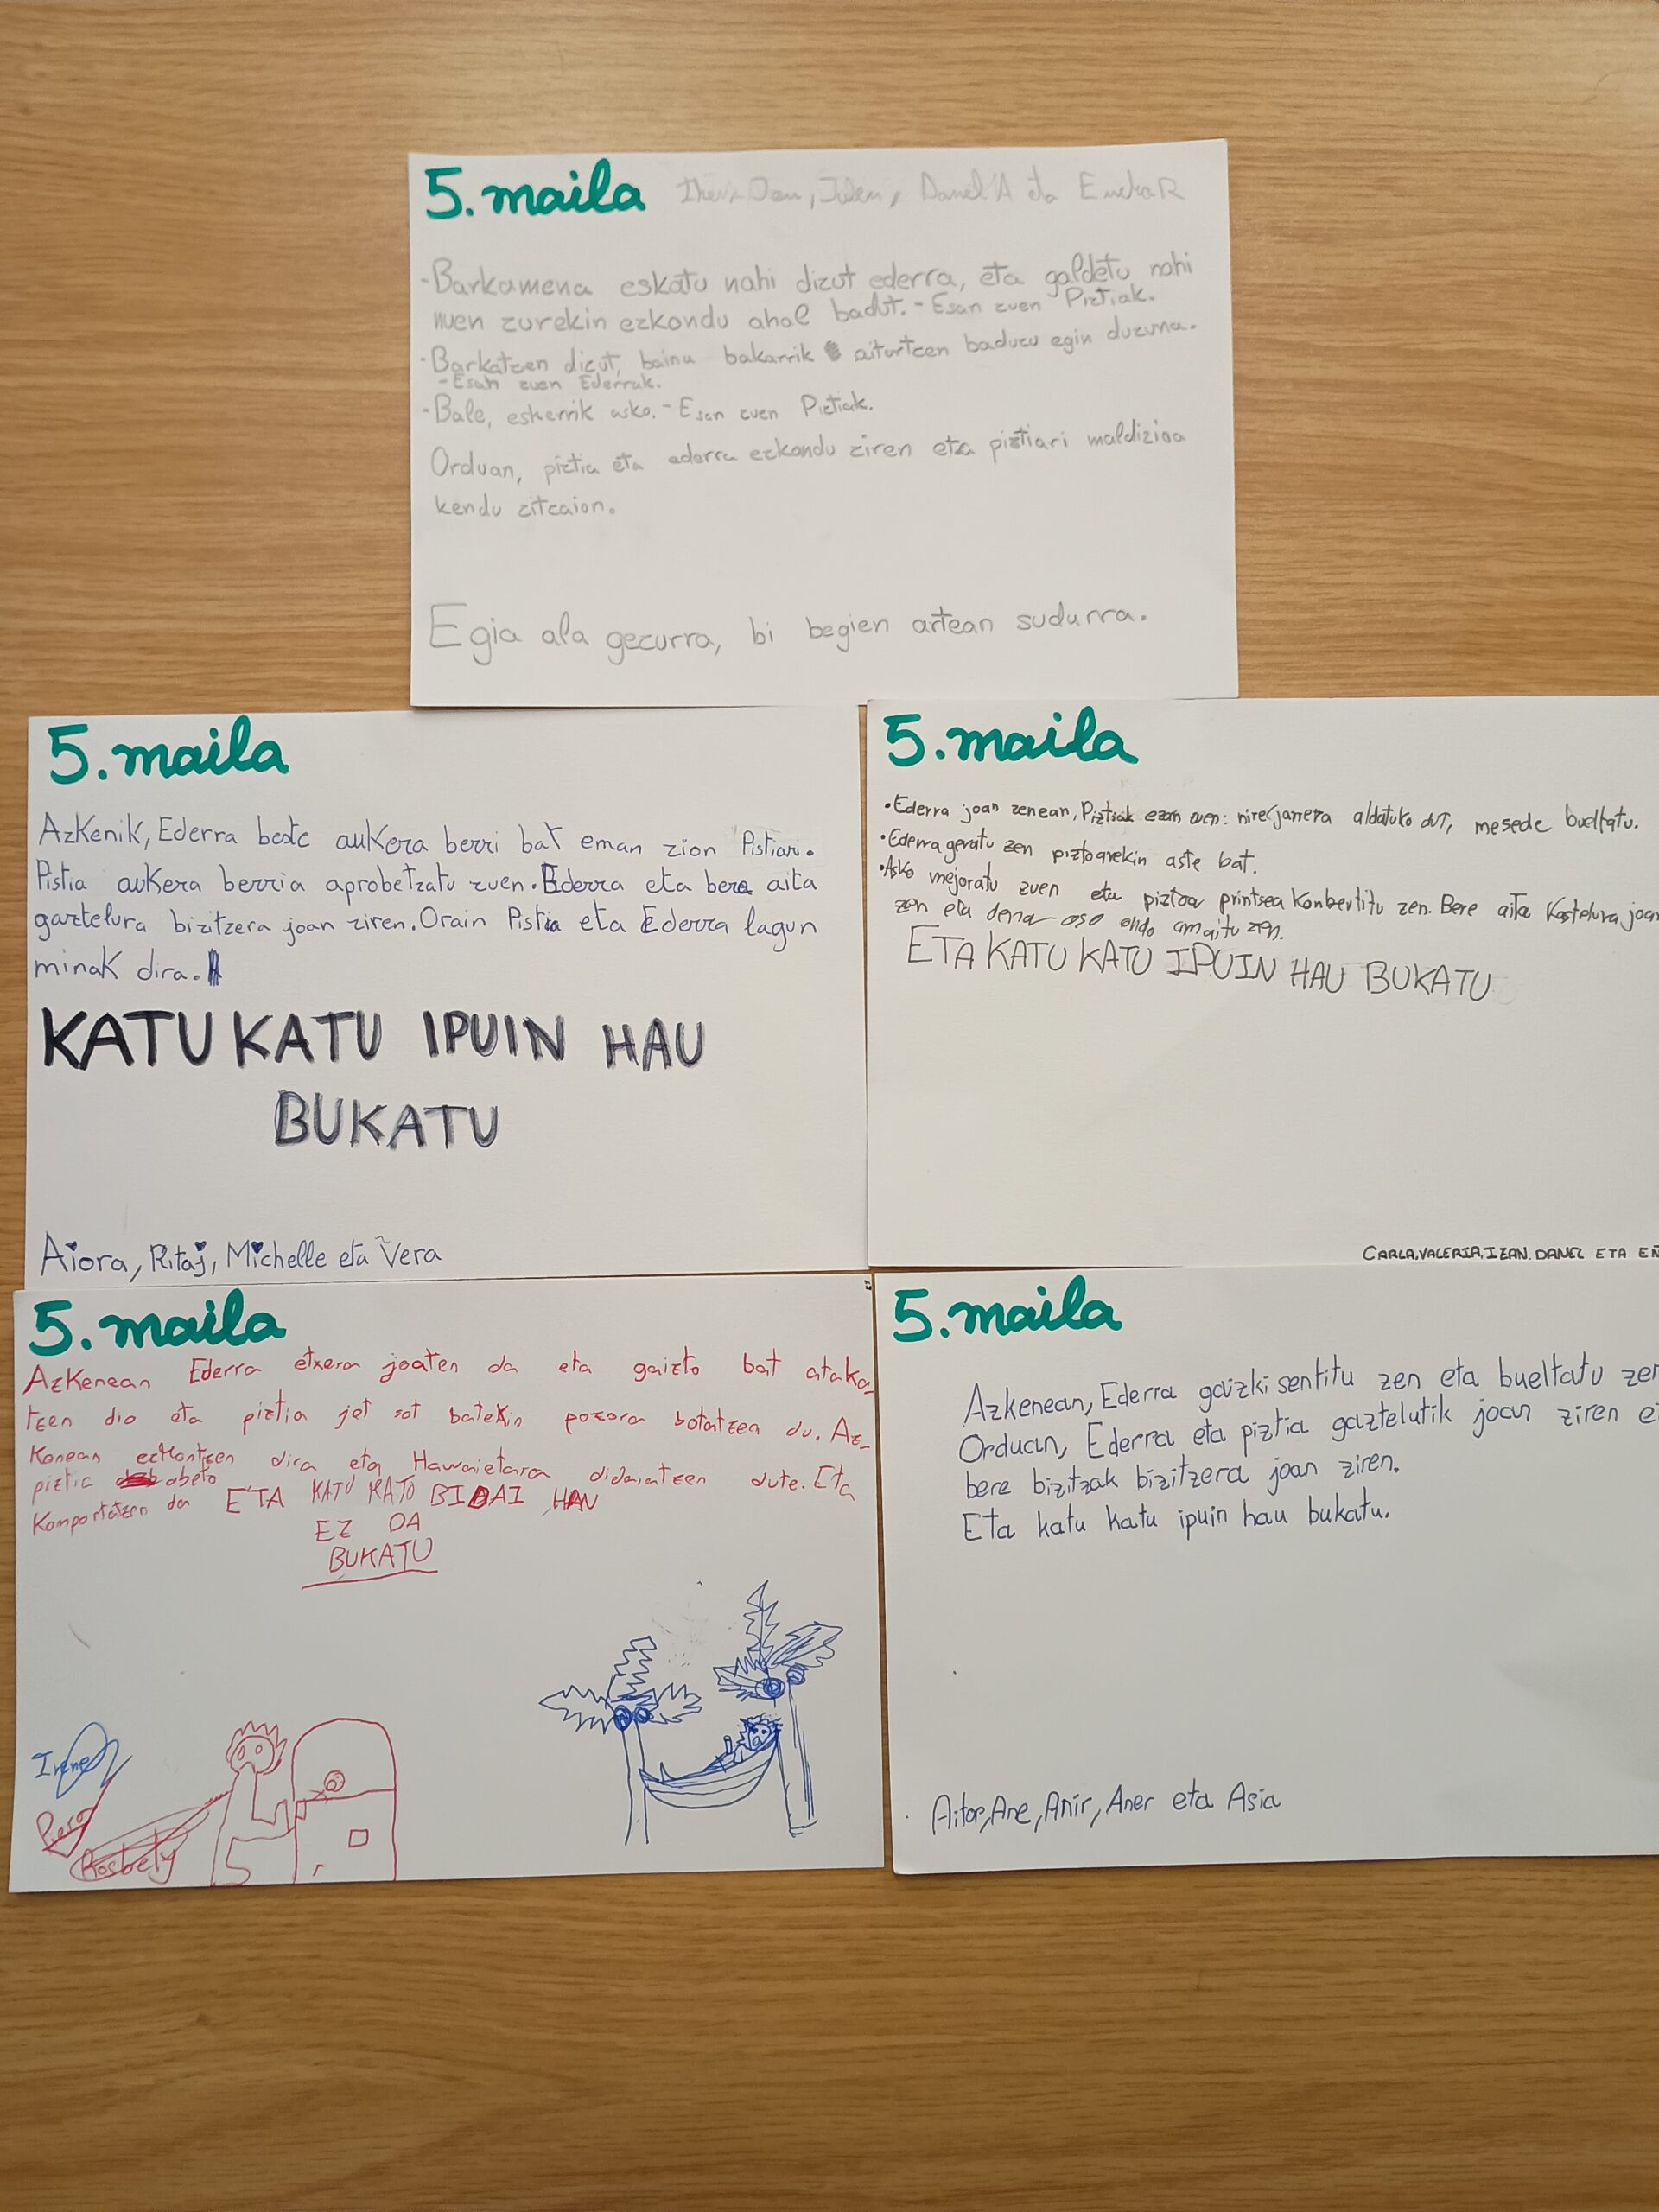 5. maila Iker, Oen, Julen, Danel A eta Eneka R
-Barkamena eskatu nahi dizut ederra, eta galdetu nahi
nuen zurekin ezkondu ahal badut. -Esan zuen Piztiak.
-Barkatzen dizut, baina bakarrik aitortzen baduzu egin duzuna.
-Esan zuen Ederrak.
-Bale, eskerrik asko. -Esan zuen Piztiak.
Orduan, piztia eta ederra ezkondu ziren eta piztiari maldizioa
kendu zitzaion.
Egia ala gezurra, bi begien artean sudurra.
5. maila
Azkenik, Ederra beste aukera berri bat eman zion Pistiari.
Pistia aukera berria aprobetzatu zuen. Ederra eta bere aita
gaztelura bizitzera joan ziren. Orain Pistia eta Ederra lagun
minak dira.
KATU KATU IPUIN HAU
BUKATU
Aiora, Ritaj, Michelle eta Vera
5. maila
•Ederra joan zenean, Piztiak ezan zuen: nire janrera aldatuko dut, mesede bueltatu.
•Ederra geratu zen piztoarekin aste bat.
•Asko mejoratu zuen eta piztoa printsea konbertitu zen. Bere aita kastelura joan
zen eta dena oso ondo amaitu zen.
ETA KATU KATU IPUIN HAU BUKATU
CARLA, VALERIA, IZAN. DANEL ETA EÑ
5. maila
Azkenean Ederra etxera joaten da eta gaizto bat ataka-
tzen dio eta piztia jet sot batekin pozora botatzen du. Az-
kenean ezkontzen dira eta Hawaietara bidaiatzen dute. Eta
piztia obeto
komportatzen da ETA KATU KATU BIDAI HAU
EZ DA
BUKATU
Irene
Piero
Rosbely
5. maila
Azkenean, Ederra gaizki sentitu zen eta bueltatu zen
Orduan, Ederra eta piztia gaztelutik joan ziren et
bere bizitzak bizitzera joan ziren.
Eta katu katu ipuin hau bukatu.
Aitor, Ane, Amir, Aner eta Asia